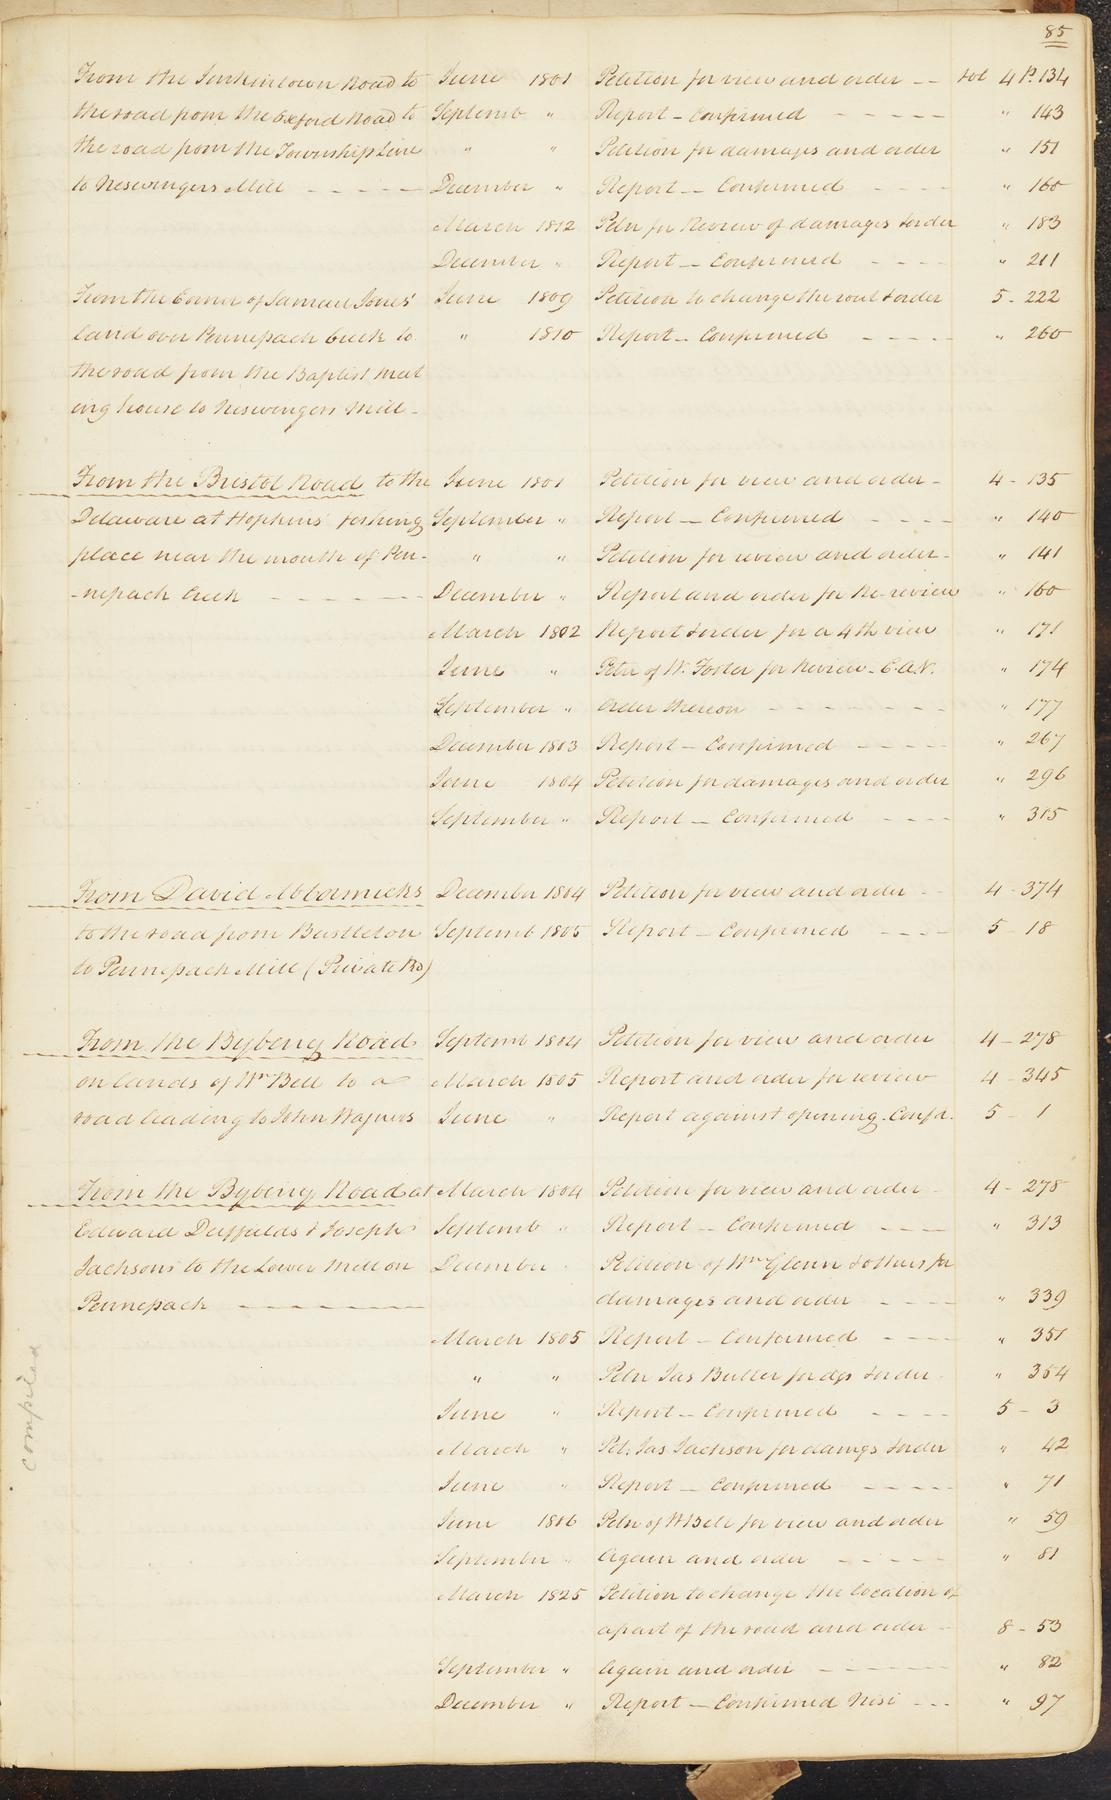 85
From the Jenkintown Road to June 1801 Petition for view and order -- vol 4 P. 134
the road from the Oxford Road to Septemb " Report - Confirmed - - - - - " 143
the road from the Township Line " " Petition for damages and order " 151
to Neswingers Mill - - - - December " Report - Confirmed - - - - " 160
March 1802 Petn for Review of damages & order " 183
December " Report - Confirmed - - - - " 211
From the Corner of Samuel Jones' June 1809 Petition to change the rout & order 5 - 222
land over Pennepack Creek to " 1810 Report - Confirmed - - - - - " 260
the road from the Baptist meet
ing house to Neswingers Mill -
From the Bristol Road to the June 1801 Petition for view and order - 4 - 135
Delaware at Hopkins' fishing September " Report - Confirmed - - - - " 140
place near the mouth of Pen- " " Petition for review and order - " 141
-nepack Creek - - - - - December " Report and order for Re-review " 160
March 1802 Report & order for a 4th view " 171
June " Petn of W. Foster for Review - C.A.V. " 174
September " Order thereon - - - - - - - " 177
December 1803 Report - Confirmed - - - - " 267
June 1804 Petition for damages and order " 296
September " Report - Confirmed - - - - " 315
From David McCormicks December 1804 Petition for view and order - - 4 - 374
to the road from Bustleton Septemb 1805 Report - Confirmed - - - - 5 - 18
to Pennepack Mill (Private Rd)
From the Byberry Road Septemr 1804 Petition for view and order 4 - 278
on lands of Wm Bell to a March 1805 Report and order for review 4 - 345
road leading to John Wagners June " Report against opening - Confd. 5 - 1
From the Byberry Road at March 1804 Petition for view and order - 4 - 278
Edward Duffields & Joseph Septemb " Report - Confirmed - - - - " 313
Jacksons to the Lower Mill on December " Petition of Wm Glenn & others for
Pennepack - - - - - - - damages and order - - - - " 339
March 1805 Report - Confirmed - - - - " 351
" " Petn Jas Butler for dgs & order " 354
June " Report - Confirmed - - - - 5 - 3
March " Pet. Jas Jackson for damgs & order " 42
June " Report - Confirmed - - - - - " 71
June 1806 Petn of W Bell for view and order " 59
September " Again and order - - - - - " 81
March 1825 Petition to change the location of
a part of the road and order - 8 - 53
September " Again and order - - - - - - " 82
December " Report - Confirmed Nisi - - - " 97
compiled